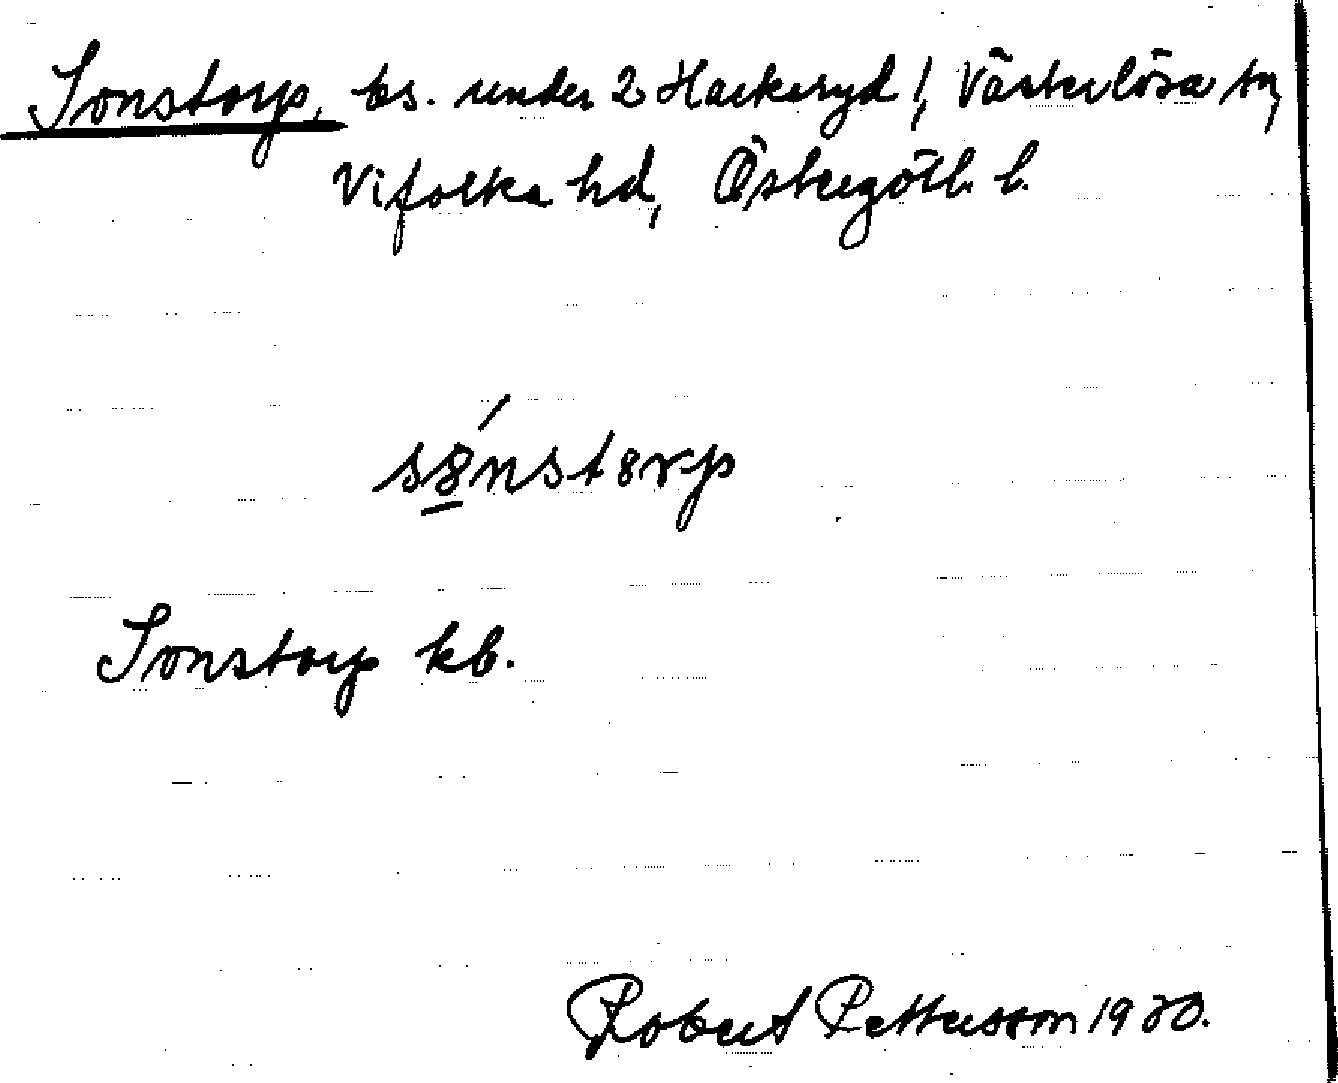 Sonstorp, bs. under 2 Hackeryd /, Västerlösa sn,
Vifolka hd, Östergötl. l.
sȣ́nstȣrp
Sonstorp kb.
Robert Pettersson 1930.